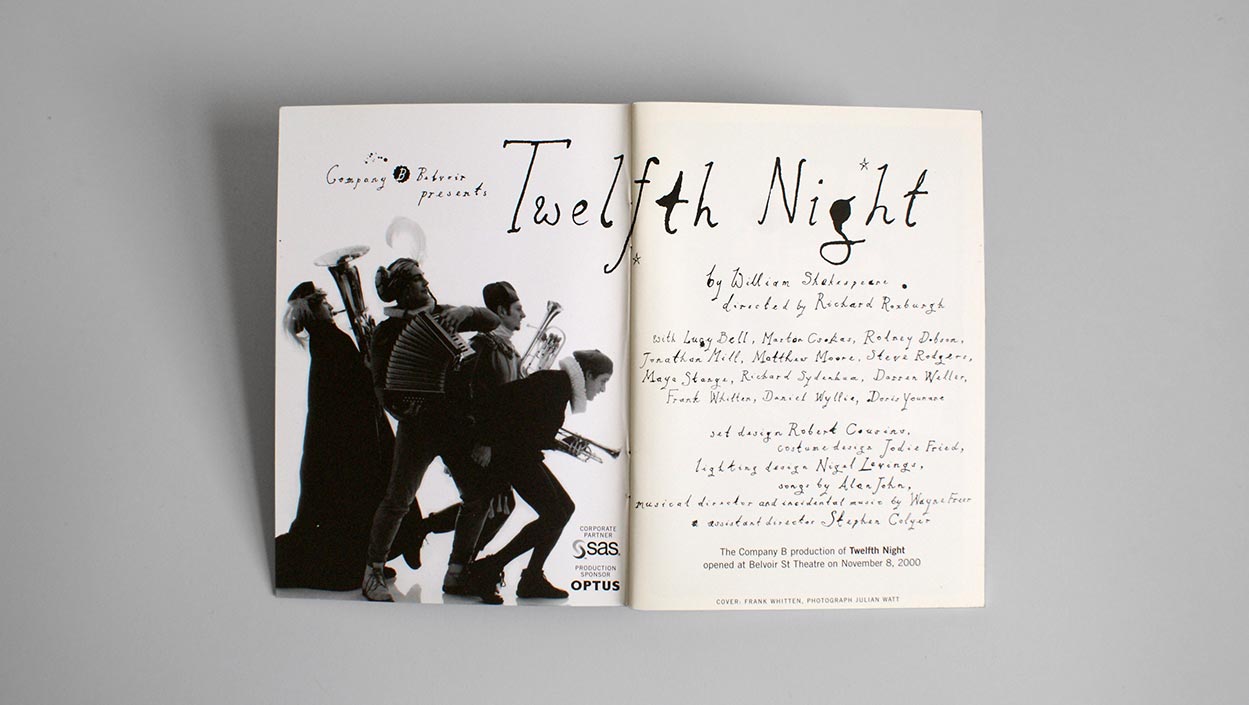 Company B Belvoir
presents
Twelfth Night
by William Shakespeare
directed by Richard Roxburgh
with Lucy Bell, Marton Csokas, Rodney Dobson,
Jonathan Mill, Matthew Moore, Steve Rodgers,
Maya Stange, Richard Sydenham, Darren Weller,
Frank Whitten, Daniel Wyllie, Doris Younane
set design Robert Cousins,
costume design Jodie Fried,
lighting design Nigel Levings,
songs by Alan John,
musical director and incidental music by Wayne Freer
assistant director Stephen Colyer
The Company B production of Twelfth Night
opened at Belvoir St Theatre on November 8, 2000
COVER: FRANK WHITTEN, PHOTOGRAPH JULIAN WATT
CORPORATE
PARTNER
sas.
PRODUCTION
SPONSOR
OPTUS